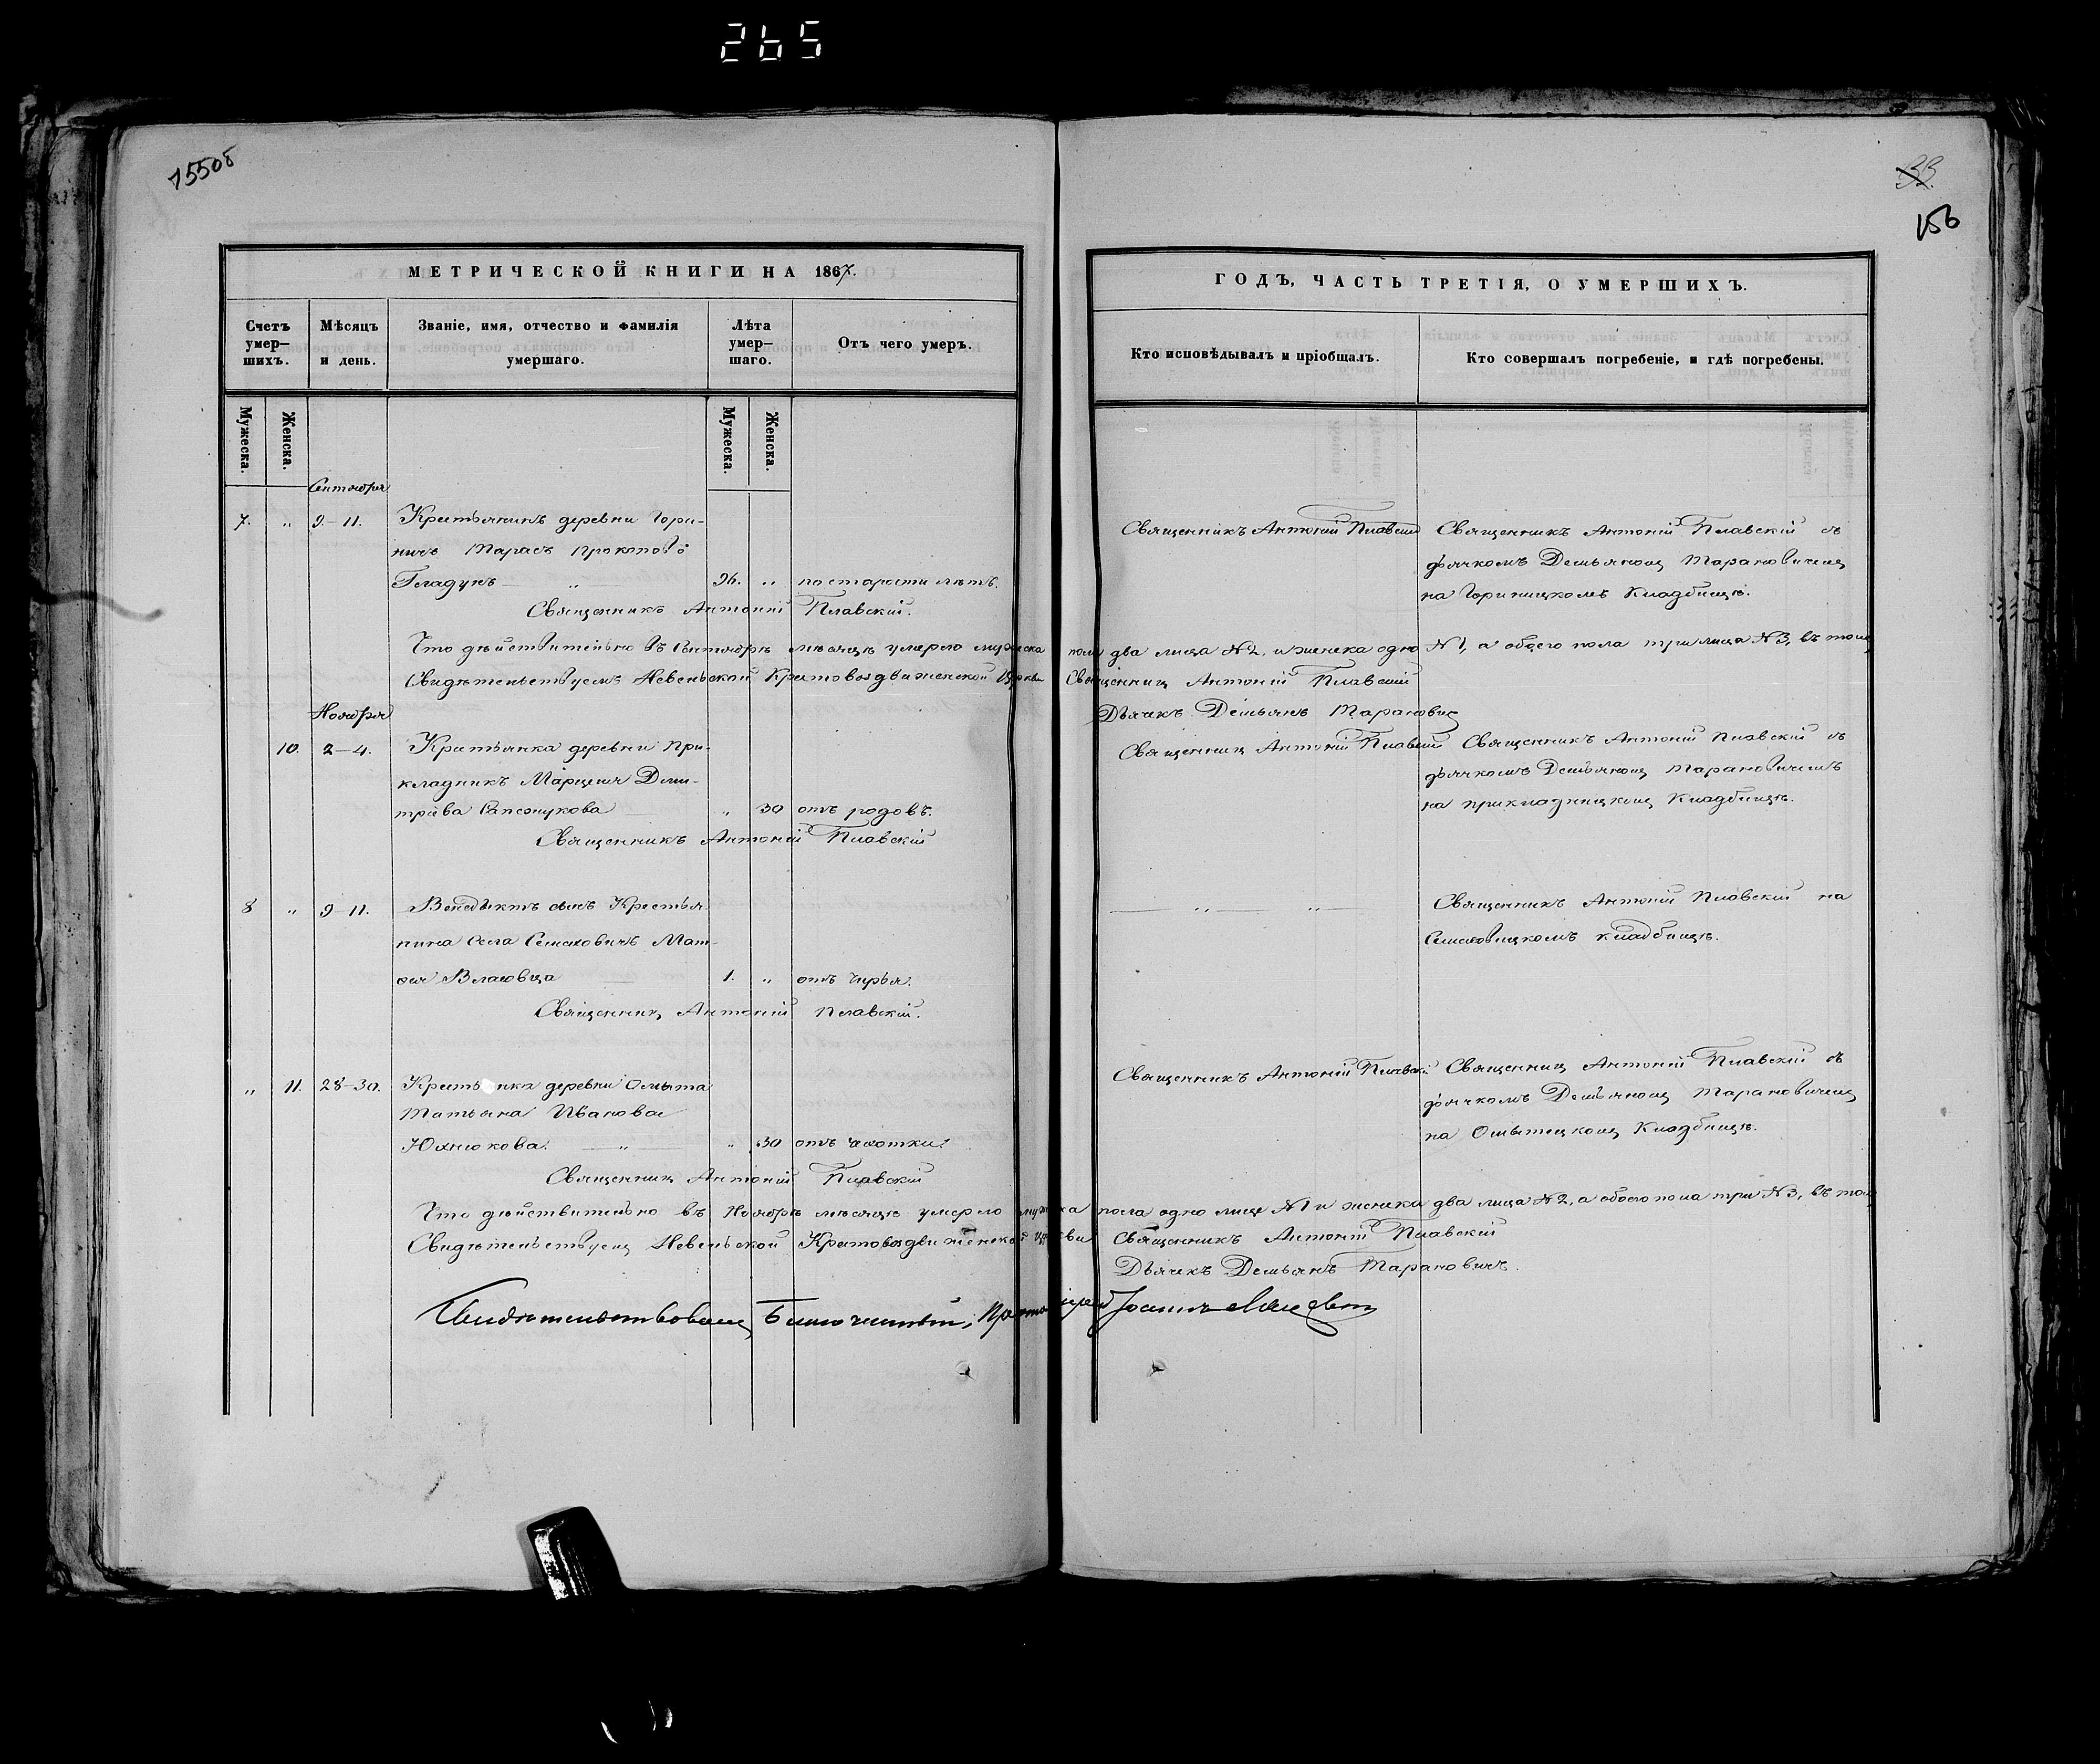 265
15508
33.
156
МЕТРИЧЕСКОЙ КНИГИ НА 1867.
Счетъ умер-шихъ.
Мѣсяцъ и день.
Званіе, имя, отчество и фамилія умершаго.
Лѣта умер-шаго.
Отъ чего умеръ.
Мужеска.
Женска.
Мужеска.
Женска.
Сентября
7. " 9-11. Крестьянинъ деревни Гори-
ничъ Тарасъ Прокоповъ
Гладунъ — " — 96. " по старости лѣтъ.
Священникъ Антоній Плавскій.
Что дѣйствительно въ Сентябрѣ мѣсяцѣ умерло мужеска
Свидѣтельствуемъ Невельской Крестовоздвиженской Церкви
Ноября
10. 2-4. Крестьянка деревни При-
кладникъ Марцеля Дми-
тріева — " 30 отъ родовъ.
Священникъ Антоній Плавскій
8 " 9-11. Венедыктъ сынъ Крестья-
нина села Семховичъ Мат-
фея Власовца — 1. " отъ чирья.
Священникъ Антоній Плавскій.
" 11. 28-30. Кресть нка деревни Омыта
Татьяна Иванова
Юхнюкова. — " — " 30 отъ чахотки.
Священникъ Антоній Плавскій
Что дѣйствительно въ Ноябрѣ мѣсяцѣ умерло мужеска
Свидѣтельствуемъ Невельской Крестовоздвиженской Церкви
Свидѣтельствовалъ Благочинный, Протоіерей Іоаннъ
ГОДЪ, ЧАСТЬ ТРЕТІЯ, О УМЕРШИХЪ.
Кто исповѣдывалъ и пріобщалъ.
Кто совершалъ погребеніе, и гдѣ погребены.
Священникъ Антоній Плавскій
Священникъ Антоній Плавскій съ
дьячкомъ Демьяномъ Тарановичемъ
на Гориницкомъ Кладбищѣ.
пола два лица №2, и женска одно №1, а обоего пола три лица №3, въ томъ
Священникъ Антоній Плавскій
Дьячекъ Демьянъ Тарановичъ
Священникъ Антоній Плавскій
Священникъ Антоній Плавскій съ
дьячкомъ Демьяномъ Тарановичемъ
на прикладницкомъ Кладбищѣ.
— " — " —
Священникъ Антоній Плавскій на
Семховицкомъ кладбищѣ.
Священникъ Антоній Плавскій
Священникъ Антоній Плавскій съ
дьячкомъ Демьяномъ Тарановичемъ
на Омытецкомъ Кладбищѣ.
пола одно лице №1 и женска два лица №2, а обоего пола три №3, въ томъ
Священникъ Антоній Плавскій
Дьячекъ Демьянъ Тарановичъ.